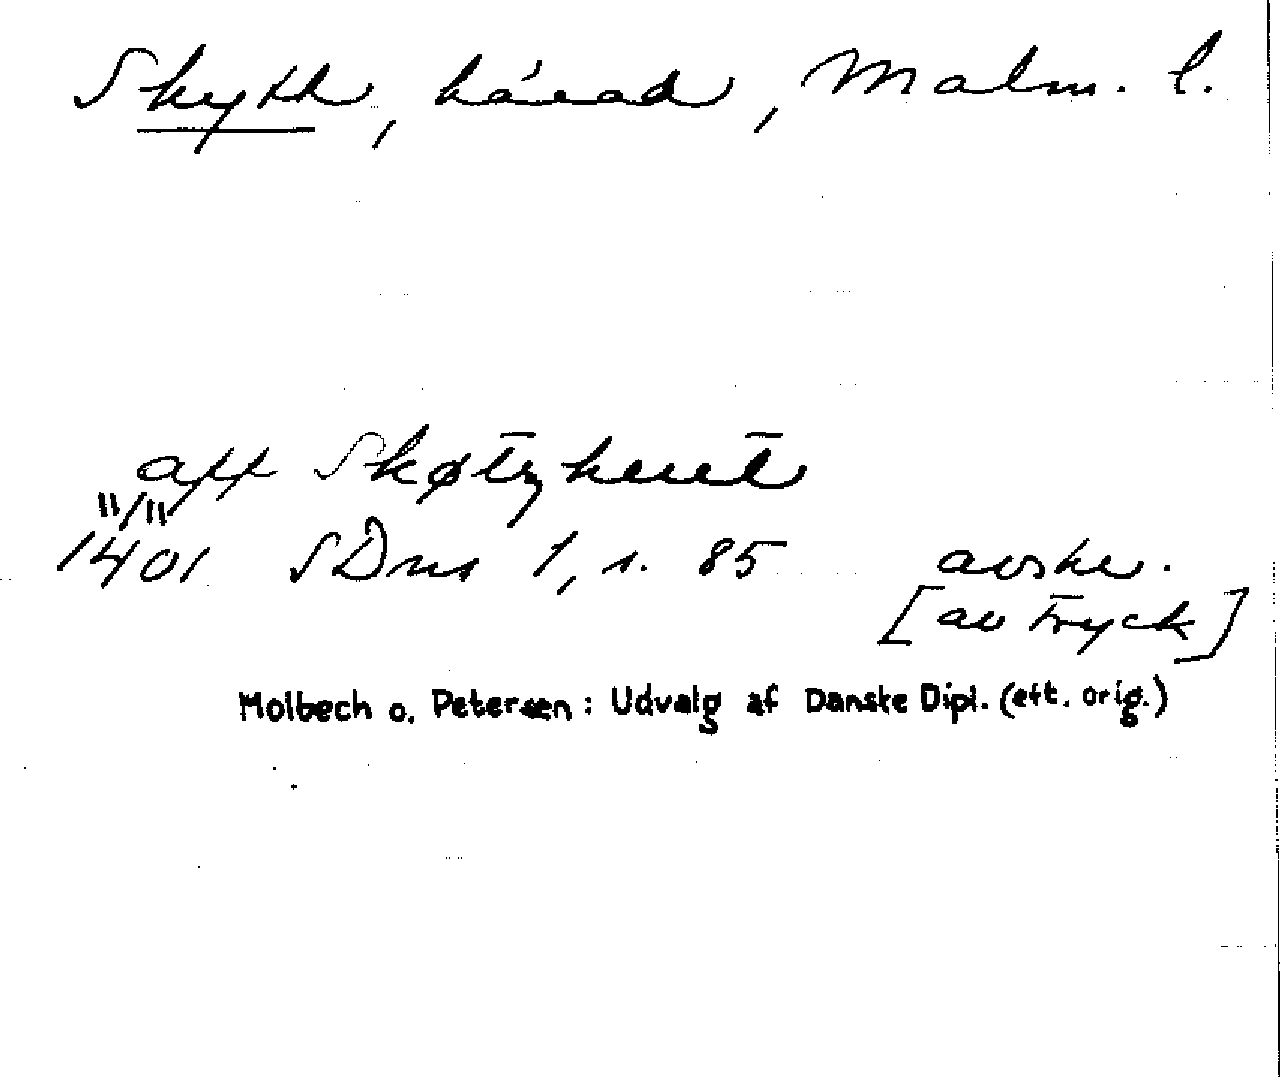 Skytts, härad, Malm. l.
aff Skøtzheret
11/11
1401 SDns 1, s. 85 avskr.
[av tryck]
Molbech o. Petersen: Udvalg af Danske Dipl. (eft. orig.)